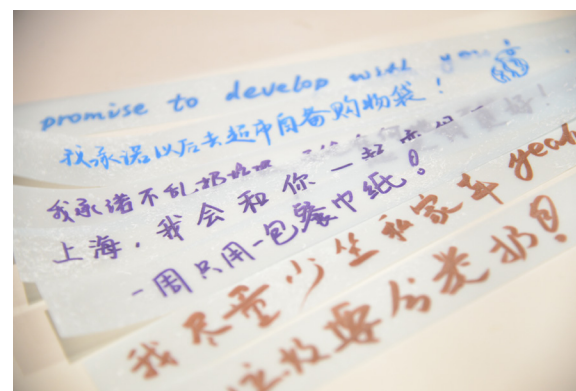 promise to develop with you
我承诺以后去超市自备购物袋！
我承诺不乱扔垃圾
更好！
上海，我会和你一起
一周只用一包餐巾纸！
我尽量少坐私家车 yeah
垃圾要分类扔！